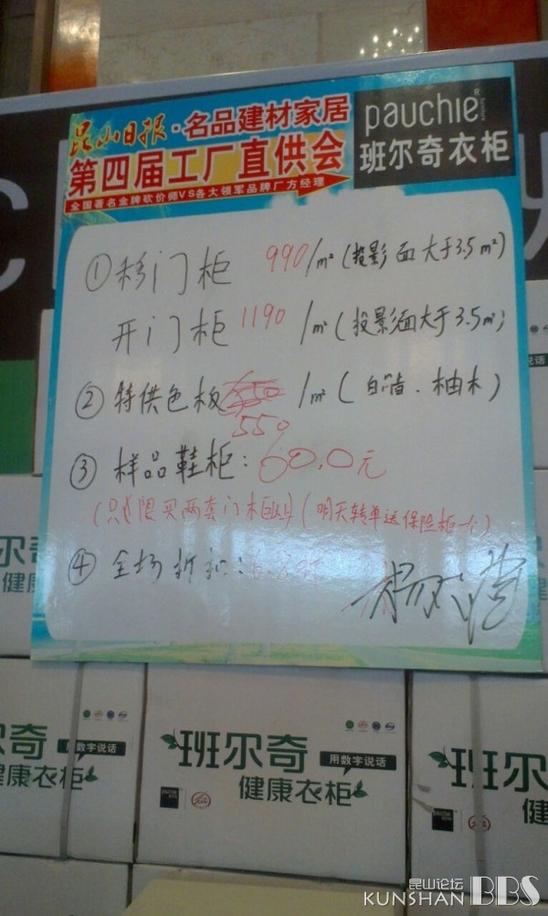 昆山日报·名品建材家居
第四届工厂直供会
全国著名金牌砍价师VS各大领军品牌厂方经理
pauchie®
班尔奇衣柜
①移门柜 990/m²(投影面大于3.5m²)
开门柜 1190/m²(投影面大于3.5m²)
②特供色板 /m²(白 . 柚木)
550
③样品鞋柜:60.0元
(只限买两套门柜)(明天转单送保险柜一个)
④全场折扣:
班尔奇
用数字说话
健康衣柜
班尔奇
用数字说话
健康衣柜
班尔
健康
昆山论坛
KUNSHAN BBS